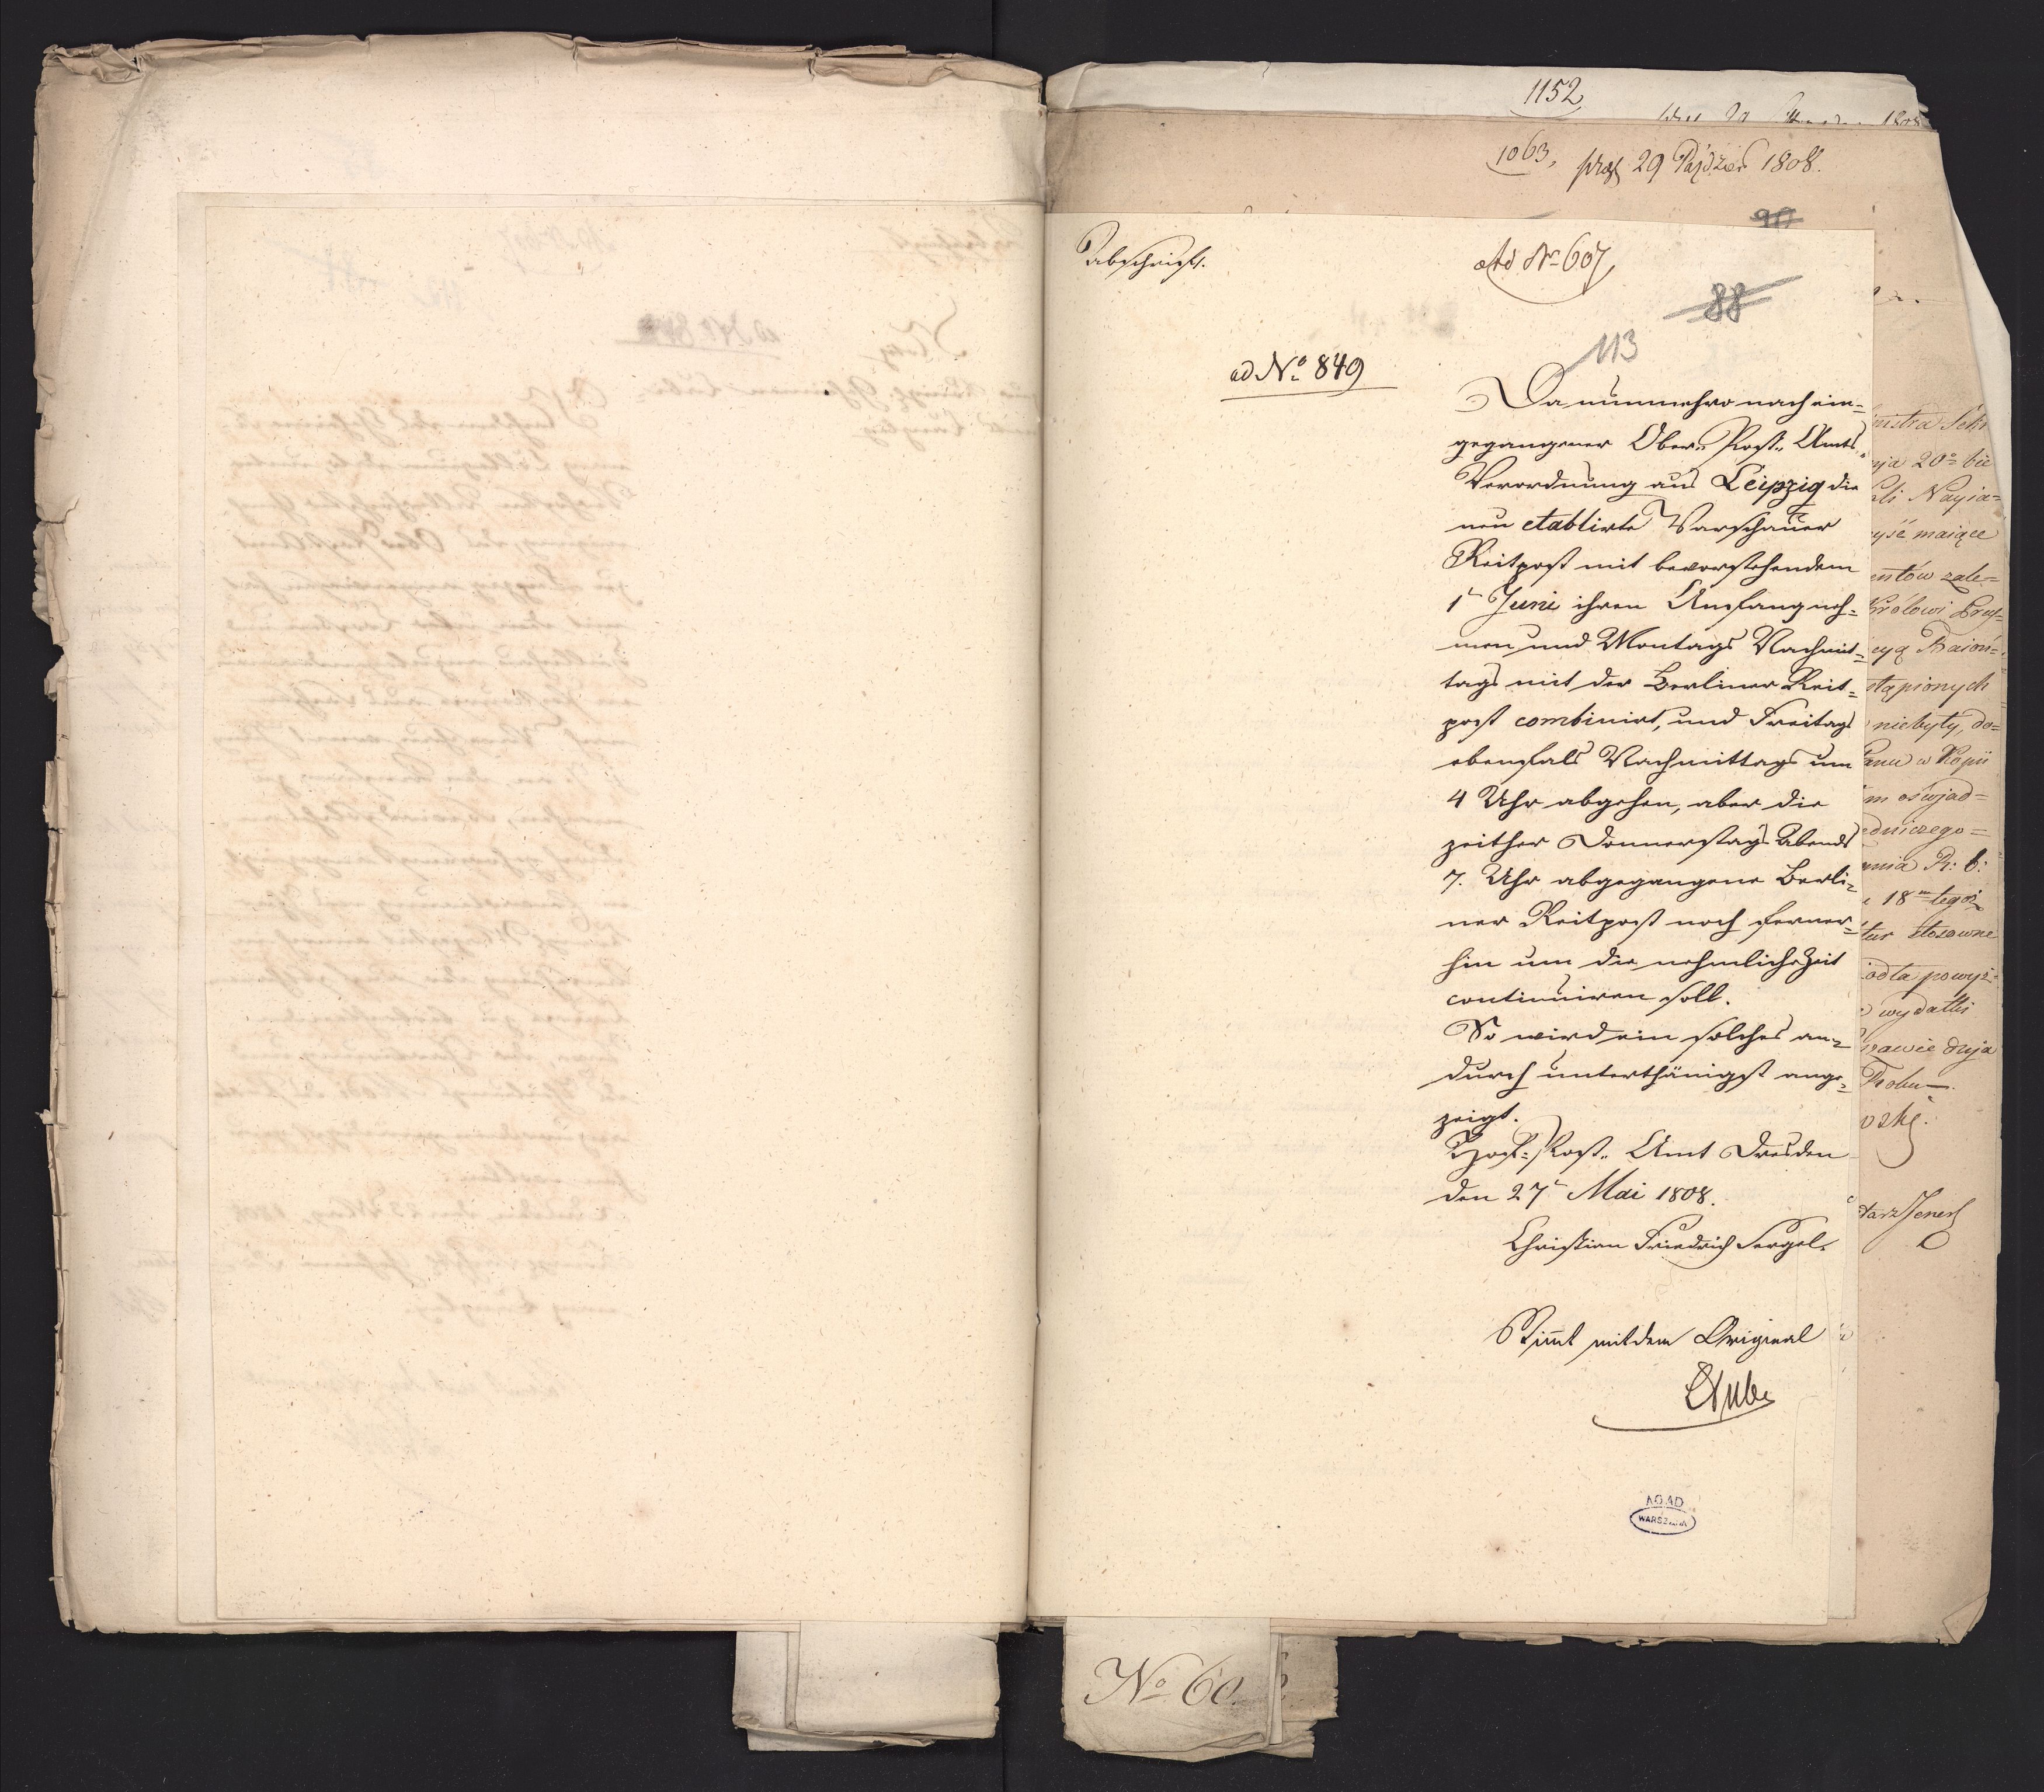 1152
1063, praes 29 Paździer 1808.
90
Abschrift.
Ad Nr 607,
88
113
ad No 849
Da nunmehro nach ein=
gegangener Ober= Post= Amts=
Verordnung aus Leipzig die
neu etablirte Warschauer
Reitpost mit bevorstehendem
1t Juni ihren Anfang neh=
men und Montags Nachmit=
tags mit der Berliner Reit=
post combinirt, und Freitags
ebenfals Nachmittags um
4 Uhr abgehen, aber die
zeither Donnerstags Abends
7. Uhr abgegangene Berli=
ner Reitpost noch ferner=
hin um die nehmliche Zeit
continuiren soll.
So wird ein solches an=
durch unterthänigst ange=
zeigt.
Hof= Post= Amt Dresden
den 27t Mai 1808.
Christian Friedrich Sergel.
Stimt mit dem Original
AGAD
WARSZAWA
No 60.
nistra Sekr
nja 20o bie
Nayia=
ysé maiące
entów zale=
Królowi Prus=
cyą Baion=
stąpionych
niebyły, do=
Panu w Kopii
m oswjad=
edniczego=
nia R: b:
18m tegoż
tur stosowne
odła powyż=
wydatki
szawie dnja
Roku
tarz Jener